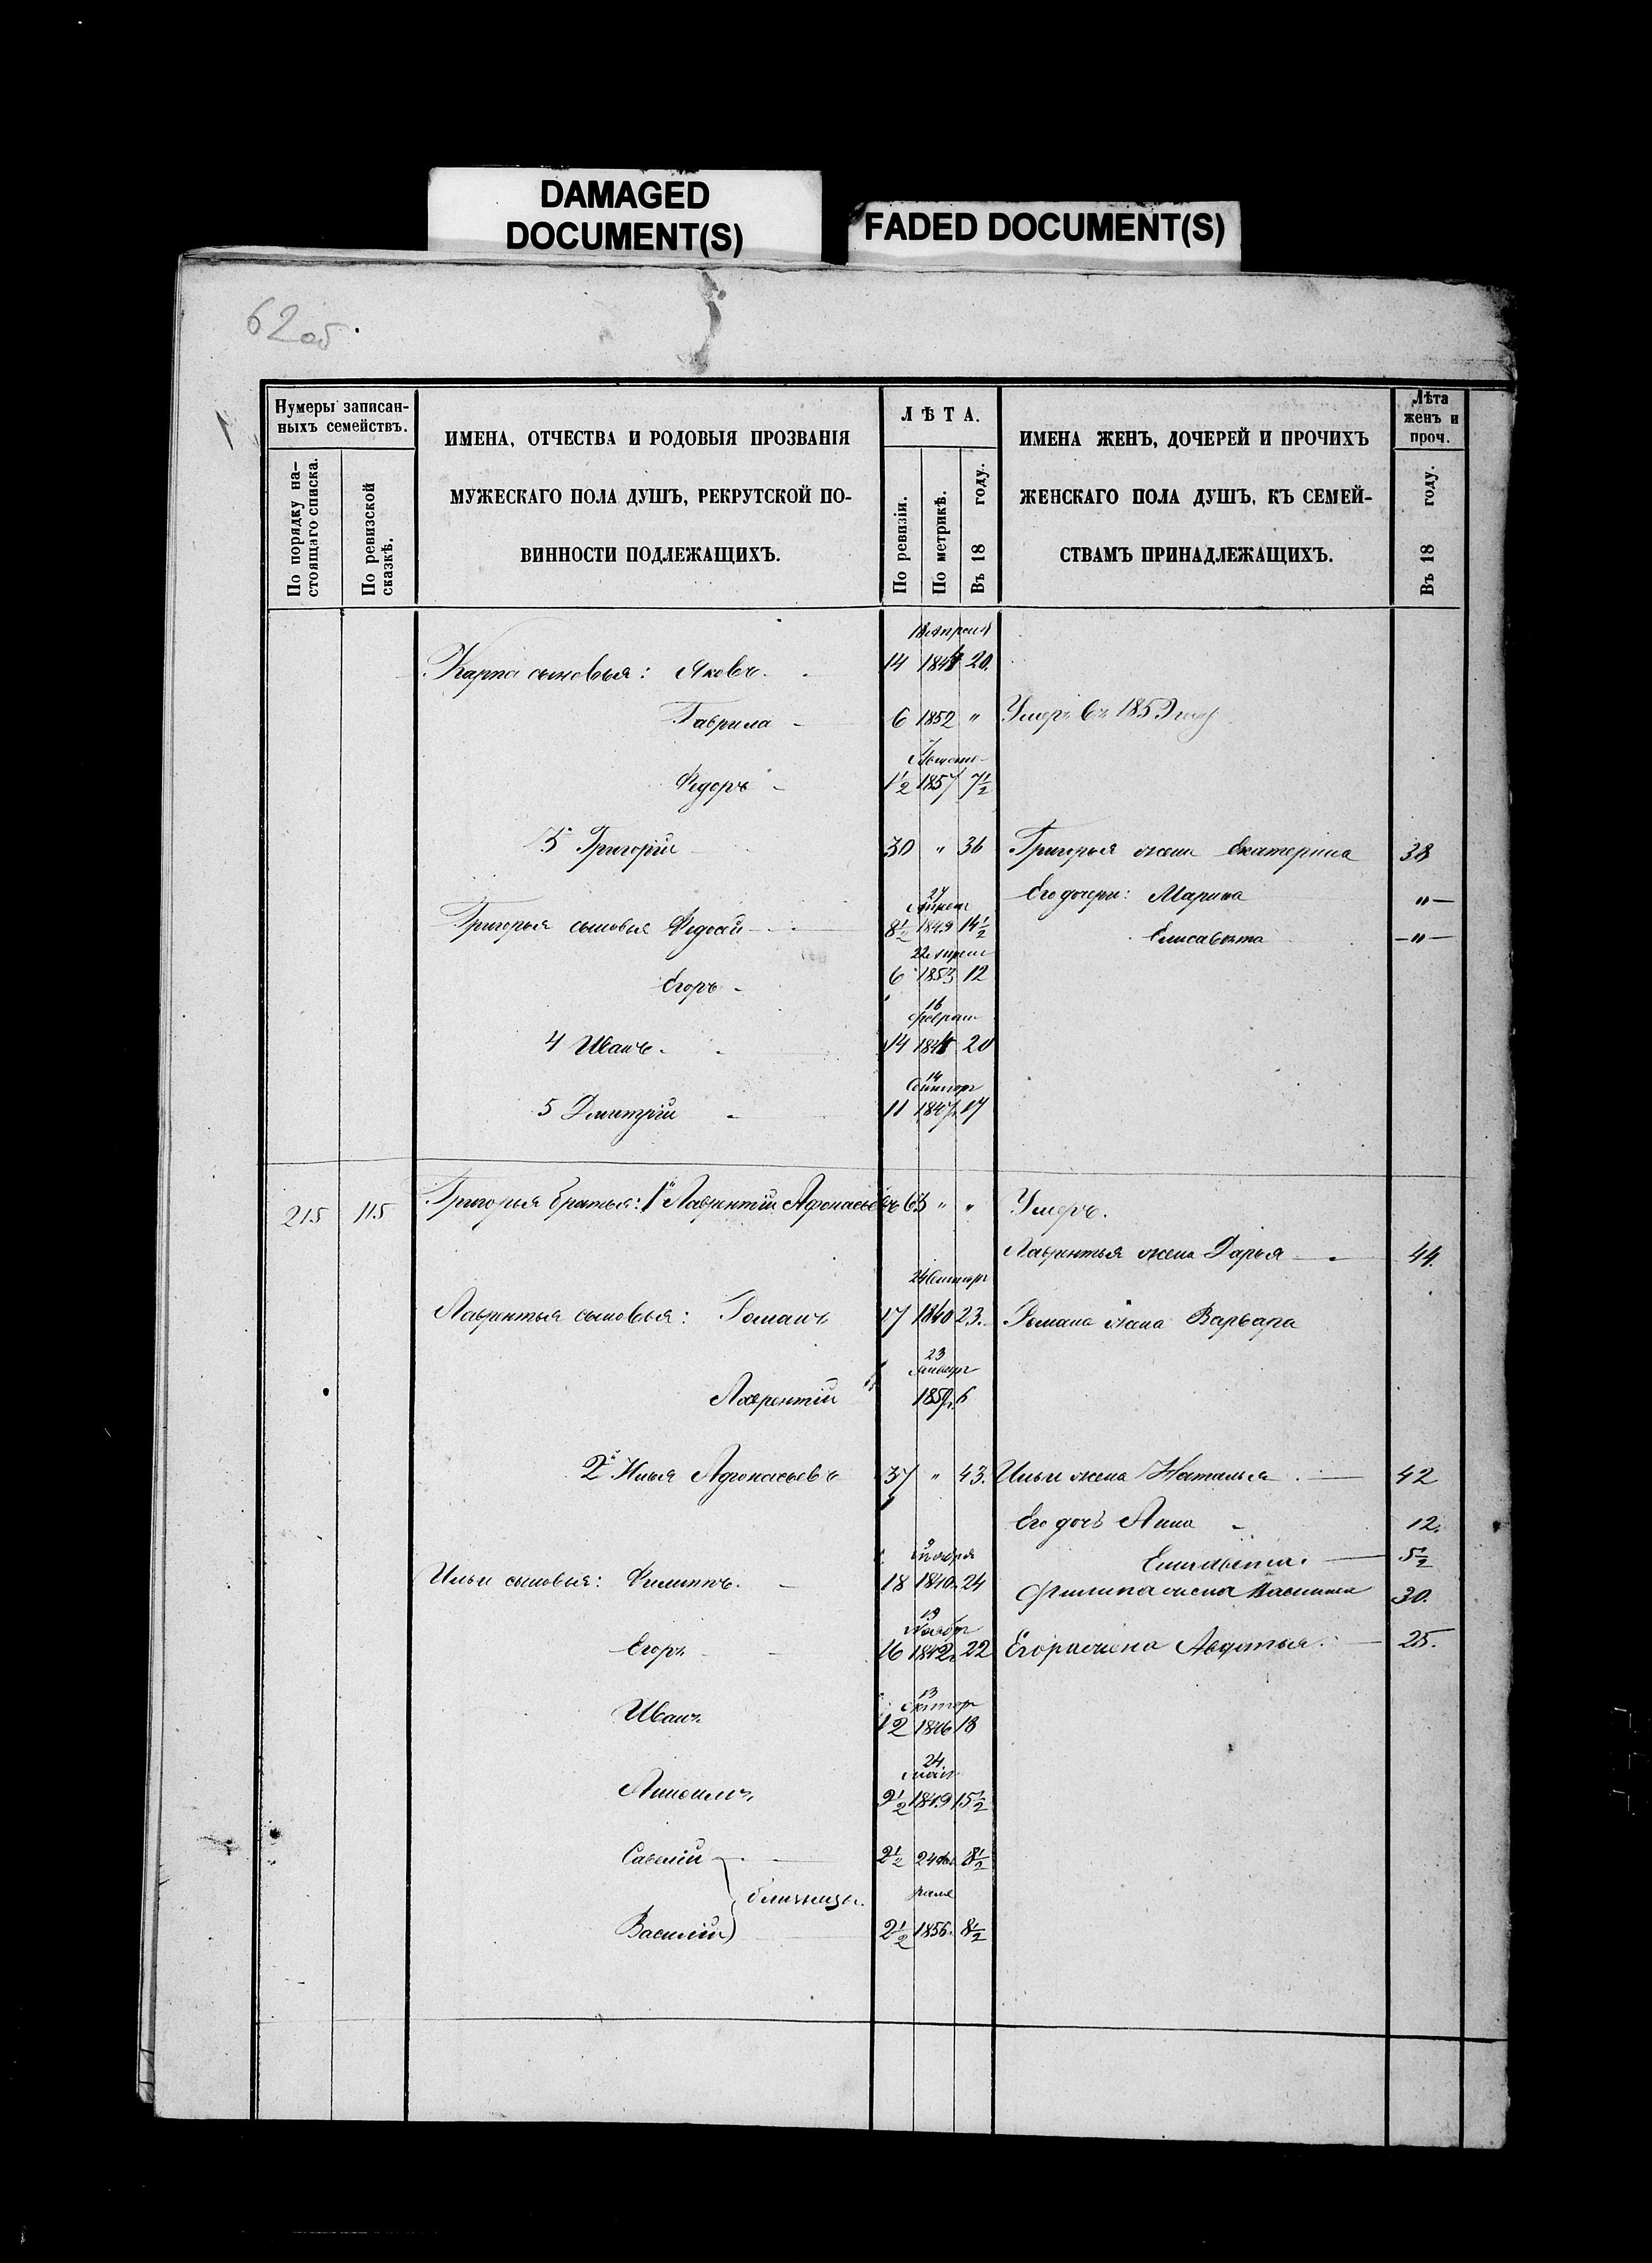 DAMAGED
DOCUMENT(S)
FADED DOCUMENT(S)
62 об.
Нумеры записан-
ныхъ семействъ.
По порядку на-
стоящаго списка.
По ревизской
сказкѣ.
ИМЕНА, ОТЧЕСТВА И РОДОВЫЯ ПРОЗВАНІЯ
МУЖЕСКАГО ПОЛА ДУШЪ, РЕКРУТСКОЙ ПО-
ВИННОСТИ ПОДЛЕЖАЩИХЪ.
ЛѢТА.
По ревизіи.
По метрикѣ.
Въ 18 году.
ИМЕНА ЖЕНЪ, ДОЧЕРЕЙ И ПРОЧИХЪ
ЖЕНСКАГО ПОЛА ДУШЪ, КЪ СЕМЕЙ-
СТВАМЪ ПРИНАДЛЕЖАЩИХЪ.
Лѣта
женъ и
проч.
Въ 18 году.
Карпа сыновья: Яковъ. 14 1844 20.
Гаврила 6 1852 " Умеръ въ 1859 году
Федоръ 1½ 1857 7½
3й Григорій 30 " 36 Григорья жена Екатерина 38
Его дочери: Марина "
27 Апрел
Григорья сыновья Федосій 8½ 1849 14½
Елисавета "
22 Апрел
Егоръ 6 1853 12
16
Феврал
4 Иванъ. 14 1844 20
14
Октяпр
5 Дмитрій 11 1847 17
215 115 Григорья братья: 1й Лаврентій Афонасьевъ 63 " " Умеръ.
Лаврентья жена Дарья 44.
Лаврентья сыновья: Романъ 17 1840 23. Романа жена Варвара
23
Январ
Лаврентій 1859 6
2й Илья Афонасьевъ 37 " 43. Ильи жена Наталья 42
Его дочь Анна 12.
Елисавета. 5½
Ноября
Ильи сыновья: Филиппъ. 18 1840 24 Филипа жена Василиса 30.
19
Ноябр
Егоръ 16 1842 22 Егора жена Авдотья. 25.
13
Октяпр
Иванъ 12 1846 18
24
Маія
9½ 1849 15½
Савелій 2½ 24 Фев 8½
близнецы. раля
Василій 2½ 1856. 8½